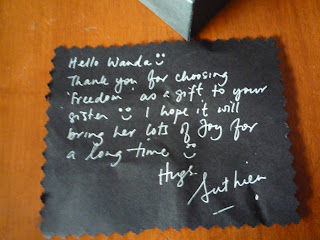 Hello Wanda
Thank you for choosing
'Freedom' as a gift to your
sister I hope it will
bring her lots of Joy for
a long time
Hugs